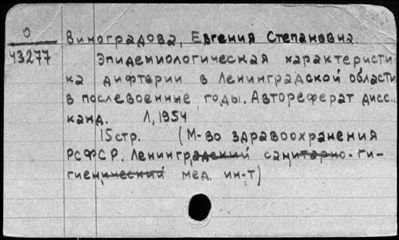 О
43277
Виноградова, Евгения Степановна
Эпидемиологическая характеристи-
ка дифтерии в Ленинградской области
в послевоенные годы. Автореферат дисс..
канд. Л, 1954
15 стр. (М-во здравоохранения
РСФСР. Ленинградский санитарно-ги-
гиенический мед. ин-т)